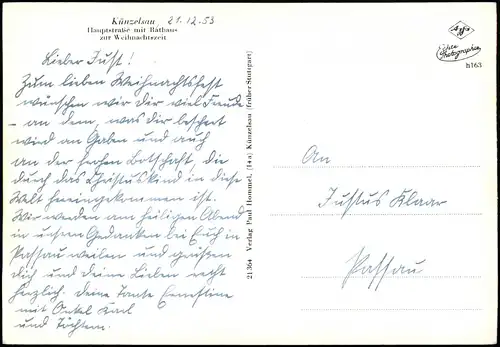 Künzelsau 21.12.53
Hauptstraße mit Rathaus
zur Weihnachtszeit
Lieber Just!
Zum lieben Weihnachtsfest
wünschen wir Dir viel Freude
- an dem, was Dir beschert
wird an Gaben und auch
an der frohen Botschaft, die
durch das Christuskind in diese
Welt hereingekommen ist.
Wir werden am heiligen Abend
in unsern Gedanken bei Euch in
Passau weilen und grüßen
dich und deine Lieben recht
herzlich. Deine Tante Ernestine
mit Onkel Karl
und Töchtern.
21.364 Verlag Paul Hommel, (14a) Künzelsau (früher Stuttgart)
Echte
Photographie
h163
An
Justus Klaar
Passau